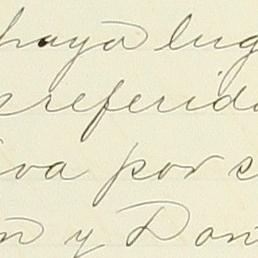 haya lug
referid
iva por s
n y Don